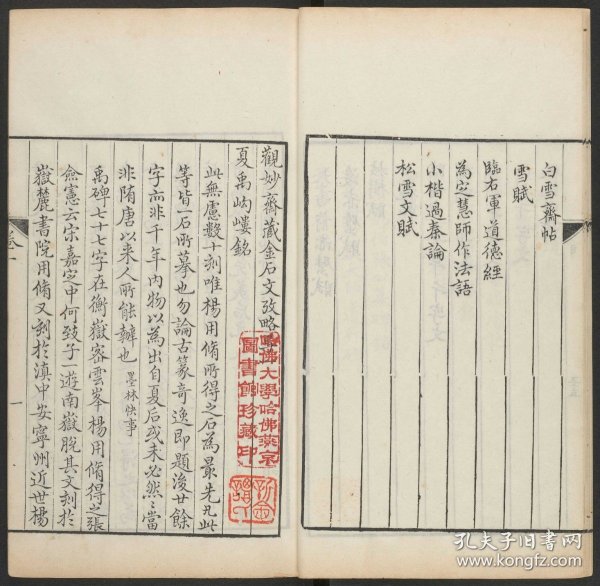 白雪齋帖
雪賦
臨右軍道德經
為定慧師作法語
小楷過秦論
松雪文賦
觀妙齋藏金石文攷略
夏禹岣嶁銘
此無慮數十刻唯楊用脩所得之石為最先凡此
等皆一石所摹也勿論古篆奇逸即題後廿餘
字亦非千年內物以為出自夏后或未必然當
非隋唐以来人所能辦也 墨林快事
禹碑七十七字在衡嶽密雲峯楊用脩得之張
僉憲云宋嘉定中何致子一遊南嶽脫其文刻於
嶽麓書院用脩又刻於滇中安寧州近世楊
卷一
一
哈佛大學哈佛燕京
圖書館珍藏印
孔夫子旧书网